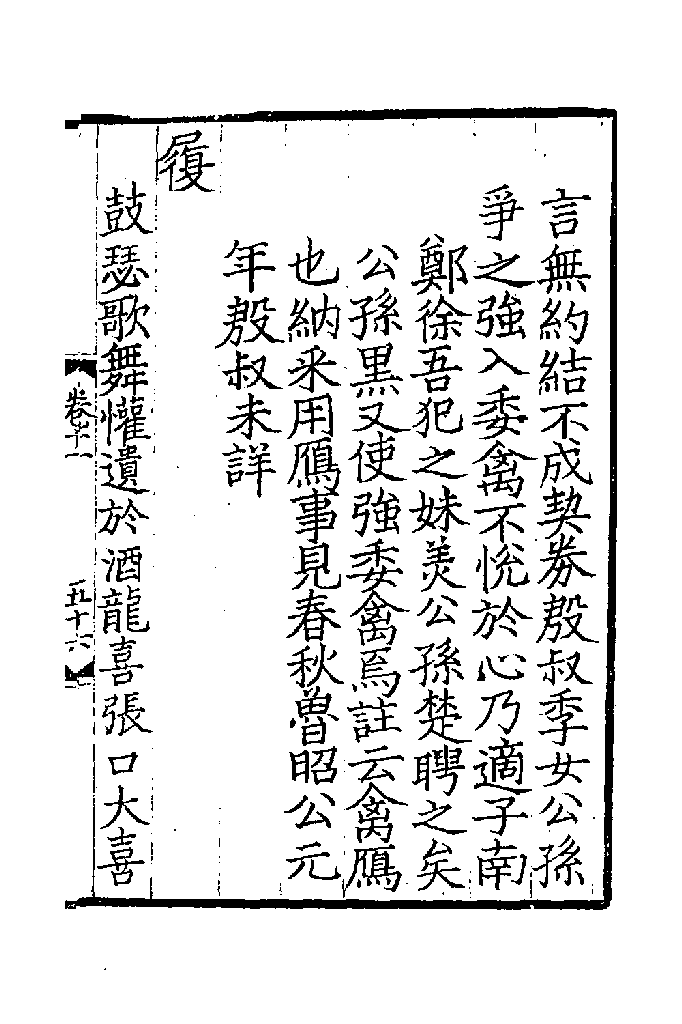 言無約結不成契券殷叔季女公孫
爭之強入委禽不悅於心乃適子南
鄭徐吾犯之妹美公孫楚聘之矣
公孫黑又使強委禽焉註云禽鴈
也納采用鴈事見春秋魯昭公元
年殷叔未詳
履
鼓瑟歌舞懽遺於酒龍喜張口大喜
卷十一
五十六